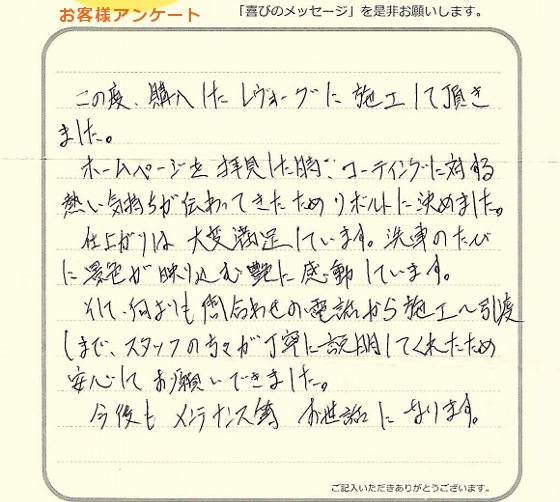 お客様アンケート 「喜びのメッセージ」を是非お願いします。
この度、購入したレヴォーグに施工して頂き
ました。
ホームページを拝見した時、コーティングに対する
熱い気持ちが伝わってきたためリボルトに決めました。
仕上がりは大変満足しています。洗車のたび
に景色が映り込む艶に感動しています。
そして、何よりも問合わせの電話から施工〜引渡
しまで、スタッフの方々が丁寧に説明してくれたため
安心してお願いできました。
今後もメンテナンス等お世話になります。
ご記入いただきありがとうございます。